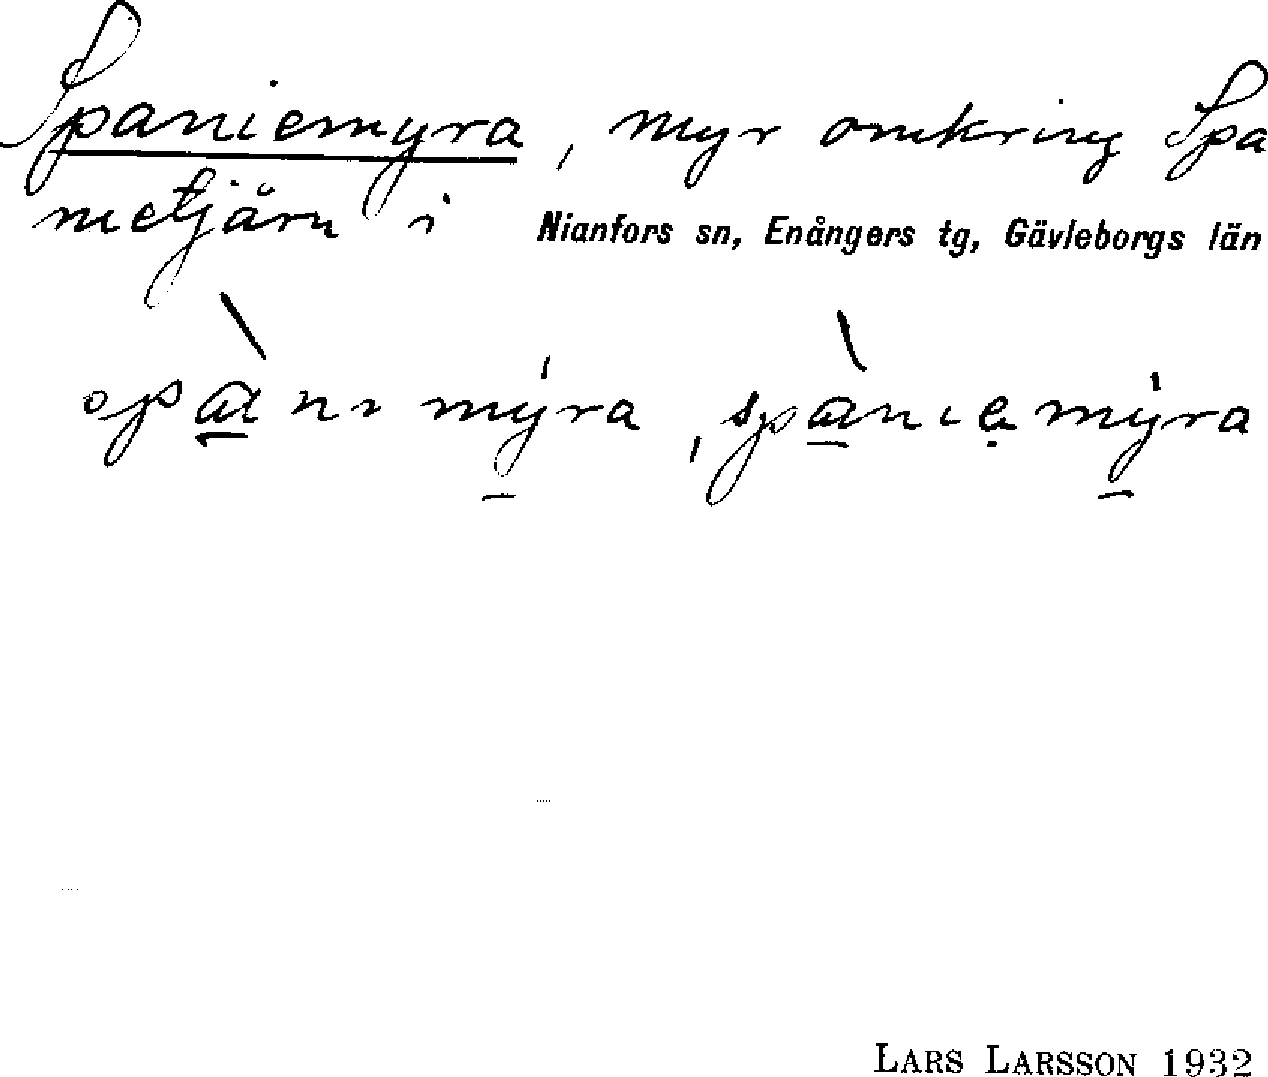 Spaniemyra, myr omkring Spa
nietjärn i Nianfors sn, Enångers tg, Gävleborgs län
spànimýra, spàniemýra
LARS LARSSON 1932